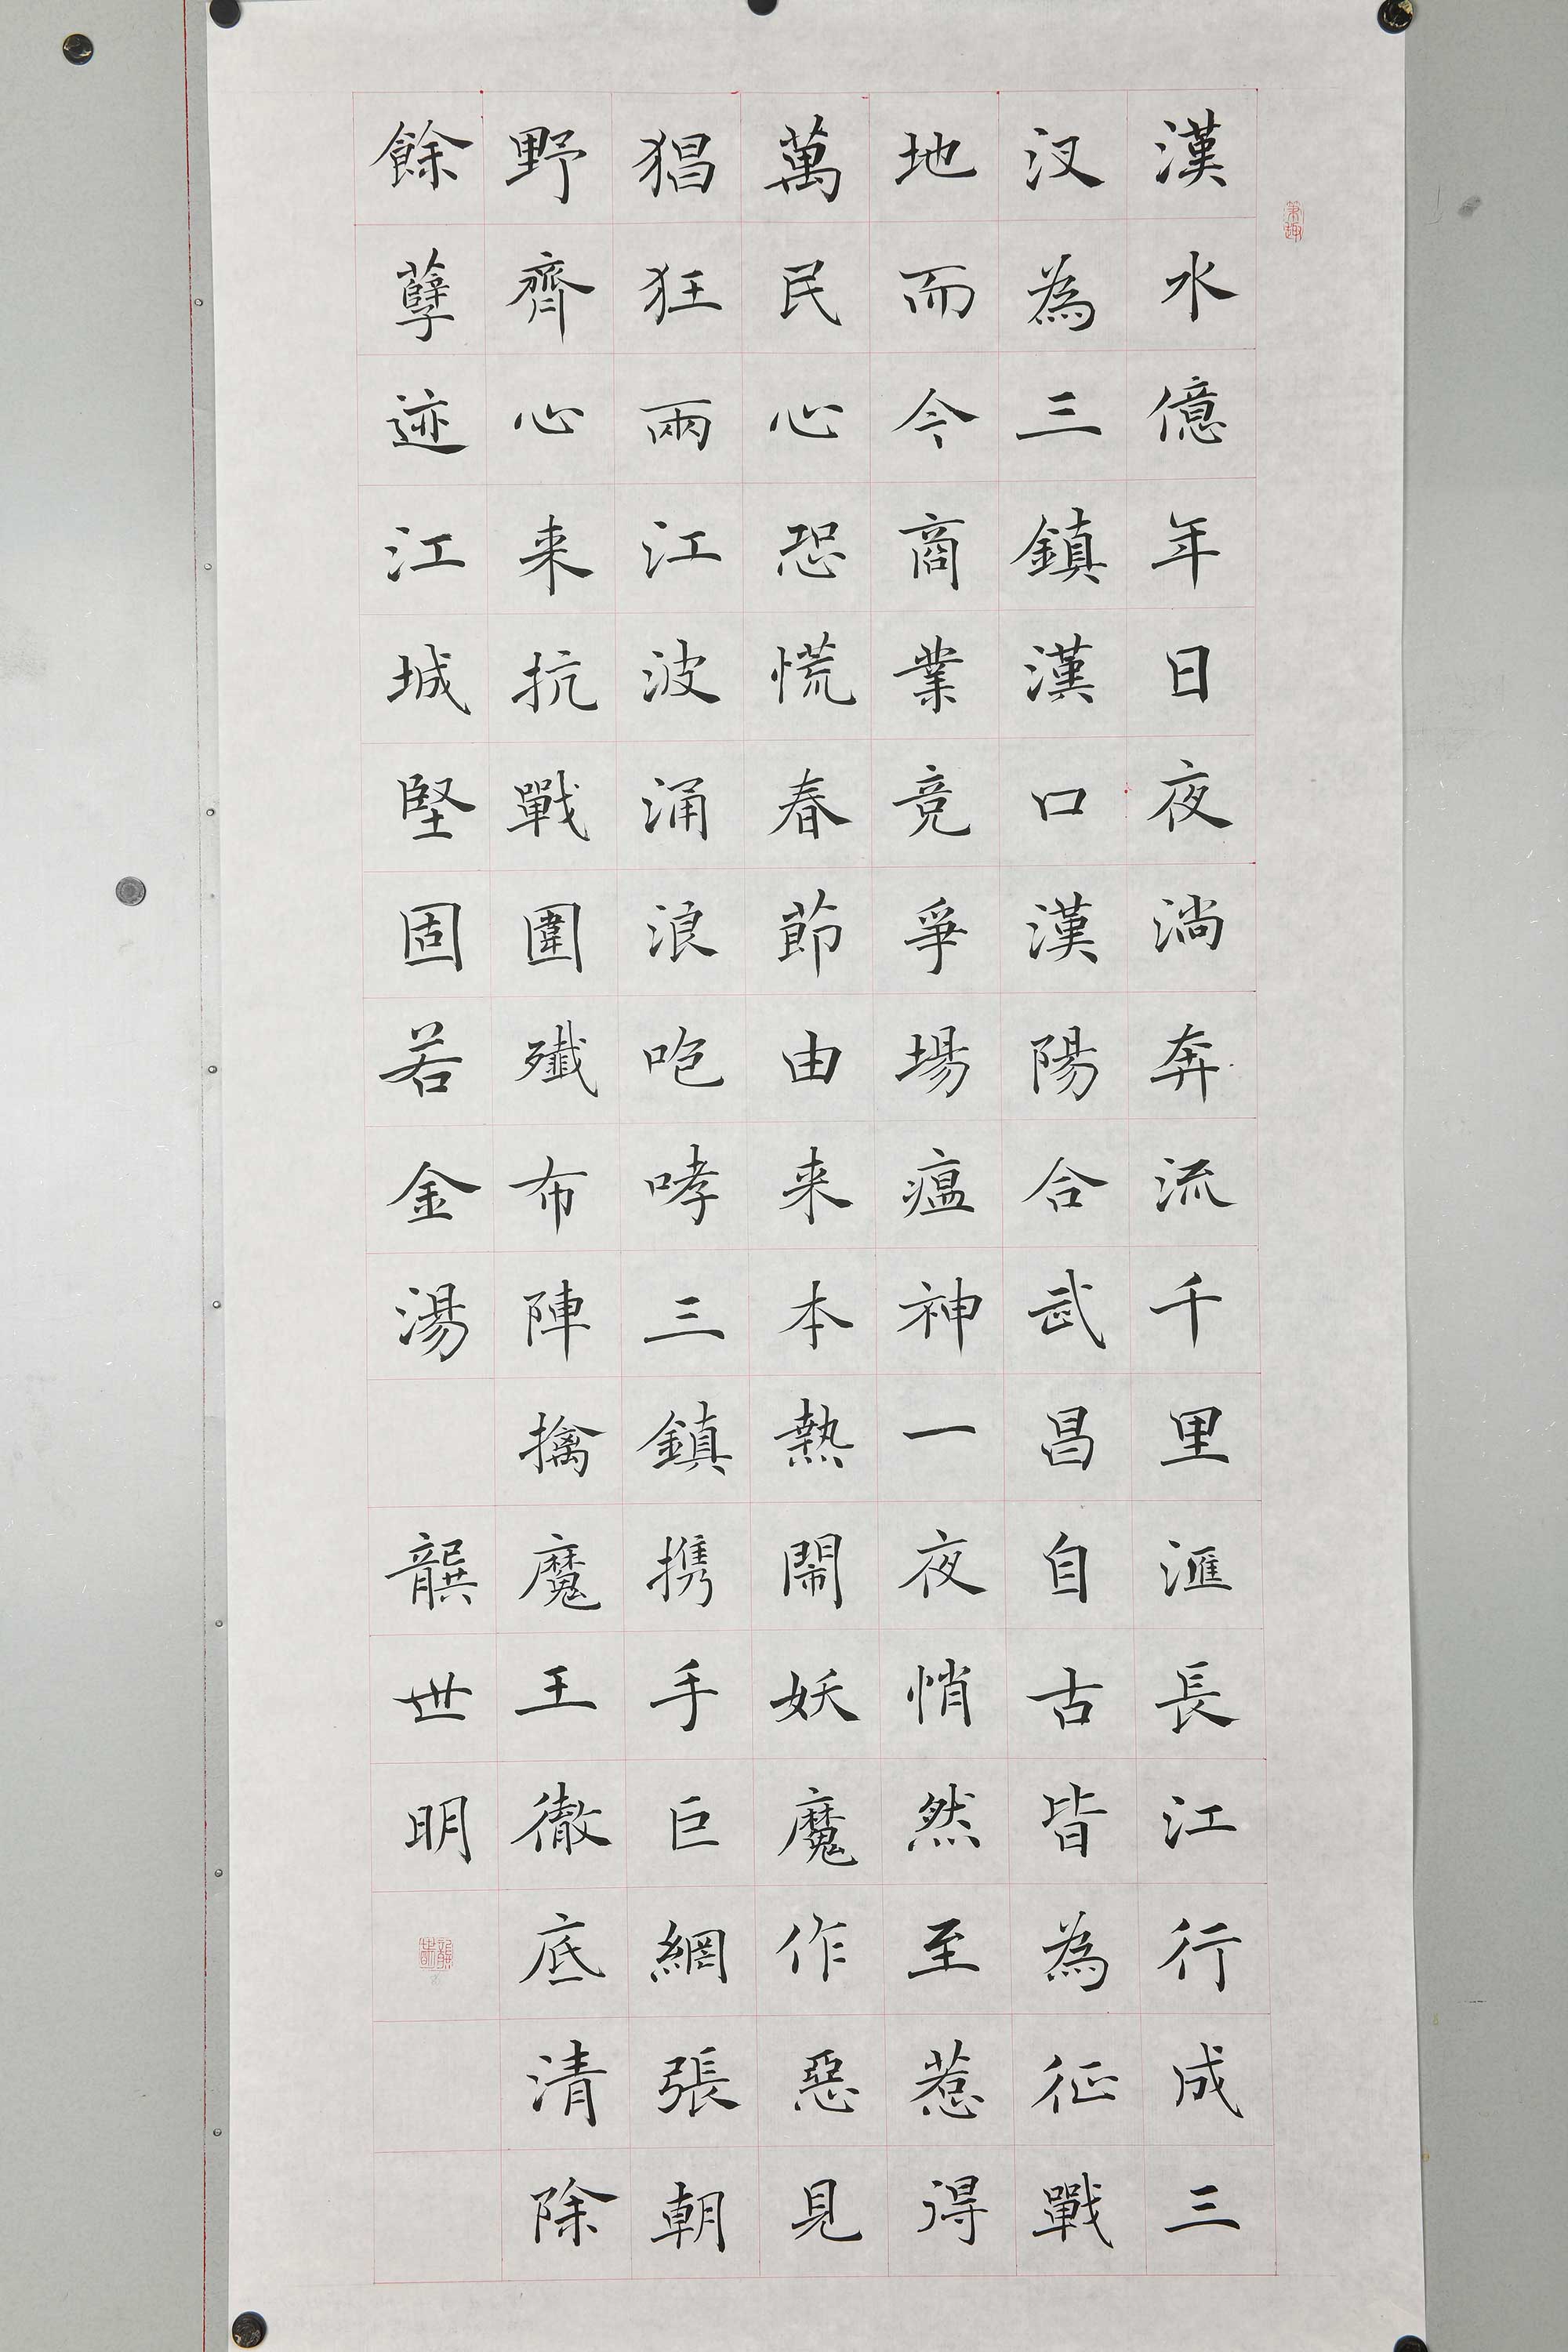 漢水億年日夜淌奔流千里滙長江行成三
汊為三鎮漢口漢陽合武昌自古皆為征戰
地而今商業竞爭場瘟神一夜悄然至惹得
萬民心恐慌春節由来本熱鬧妖魔作惡見
猖狂兩江波涌浪咆哮三鎮携手巨網張朝
野齊心来抗戰圍殲布陣擒魔王徹底清除
餘孽迹江城堅固若金湯
龔世明